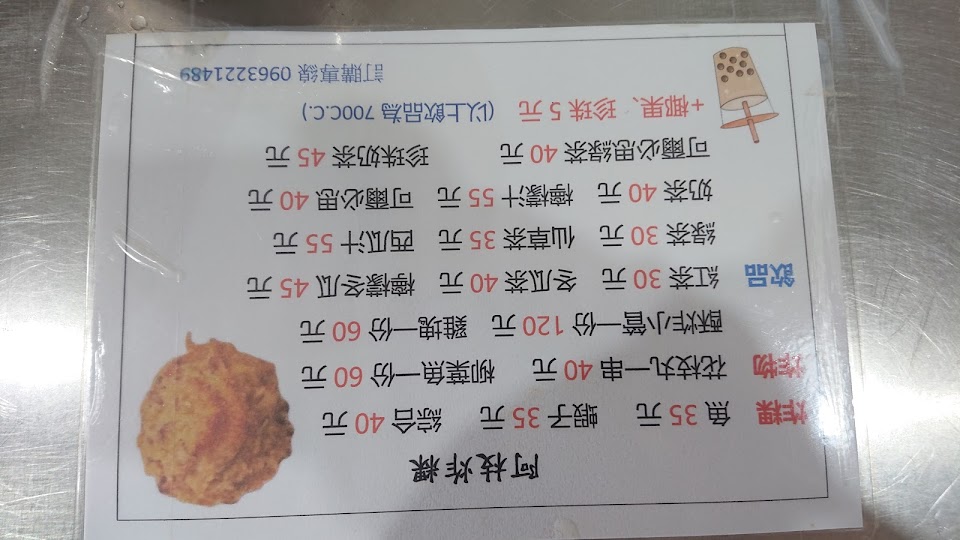 阿枝炸粿
炸粿 魚 35 元 蝦子 35 元 綜合 40 元
炸物 花枝丸一串 40 元 柳葉魚一份 60 元
酥炸小管一份 120 元 雞塊一份 60 元
飲品 紅茶 30 元 冬瓜茶 40 元 檸檬冬瓜 45 元
綠茶 30 元 仙草茶 35 元 西瓜汁 55 元
奶茶 40 元 檸檬汁 55 元 可爾必思 40 元
可爾必思綠茶 40 元 珍珠奶茶 45 元
+椰果、珍珠 5 元 (以上飲品為 700C.C.)
訂購專線 0963221489